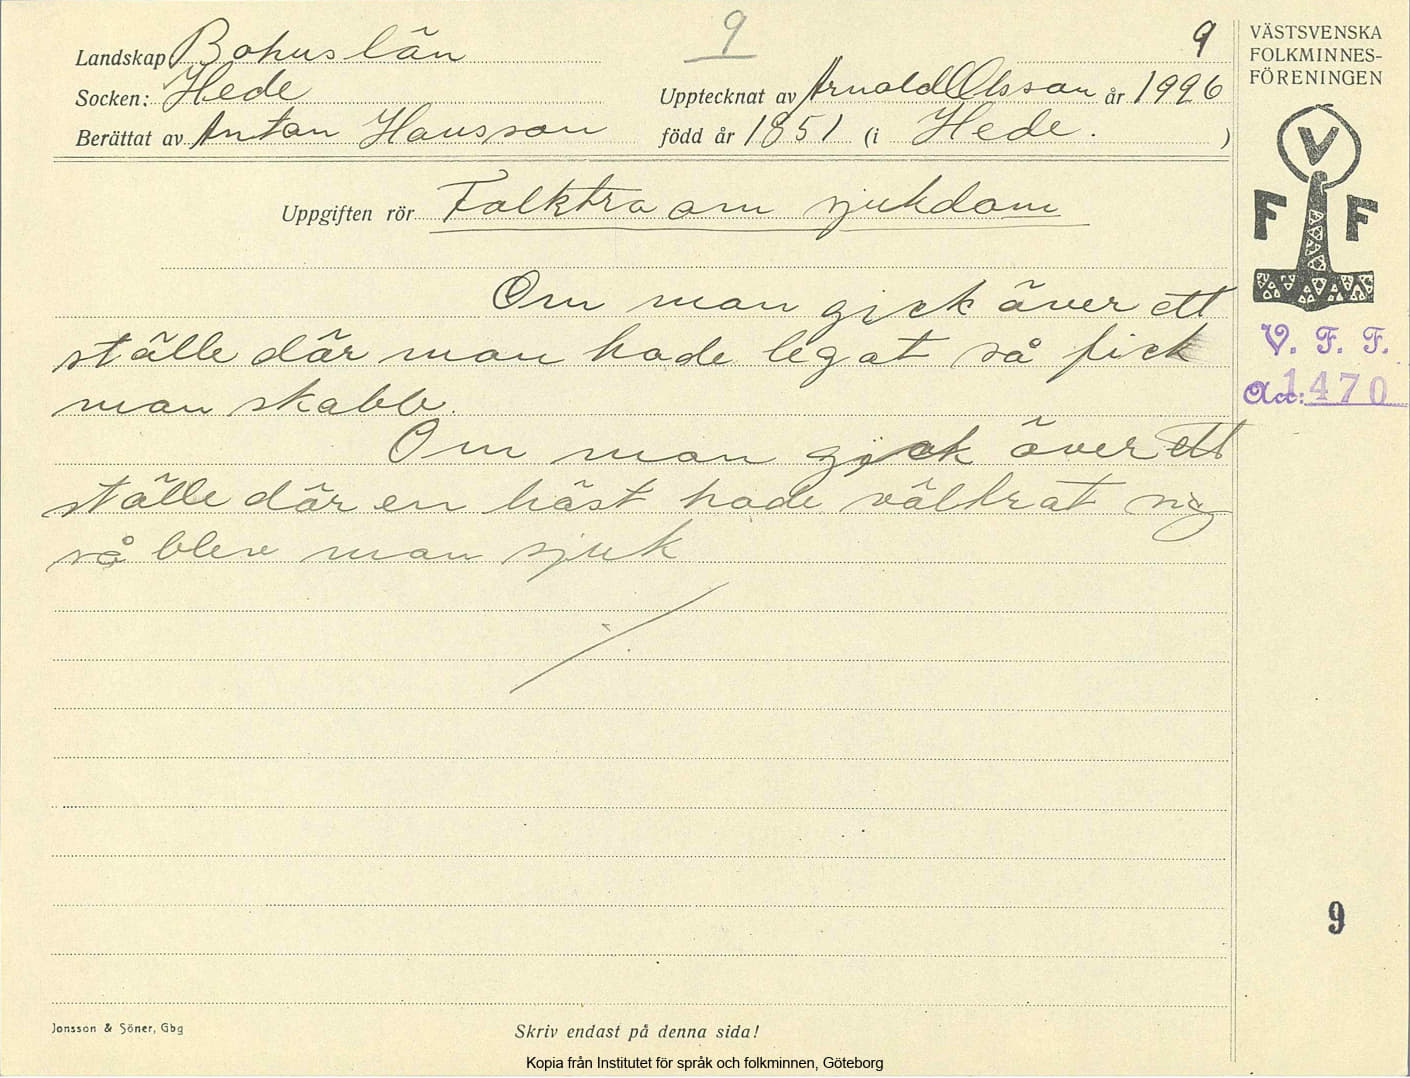 9
9
Landskap Bohuslän
Socken: Hede
Upptecknat av Arnold Olsson år 1926
Berättat av Anton Hansson
född år 1851 (i Hede. )
Uppgiften rör Folktro om sjukdom
Om man gick över ett
ställe där man hade legat så fick
man skabb.
Om man gick över ett
ställe där en häst hade vältrat sig
så blev man sjuk
VÄSTSVENSKA
FOLKMINNES-
FÖRENINGEN
V F F
V. F. F.
Acc: 1470
9
Jonsson & Söner, Gbg
Skriv endast på denna sida!
Kopia från Institutet för språk och folkminnen, Göteborg